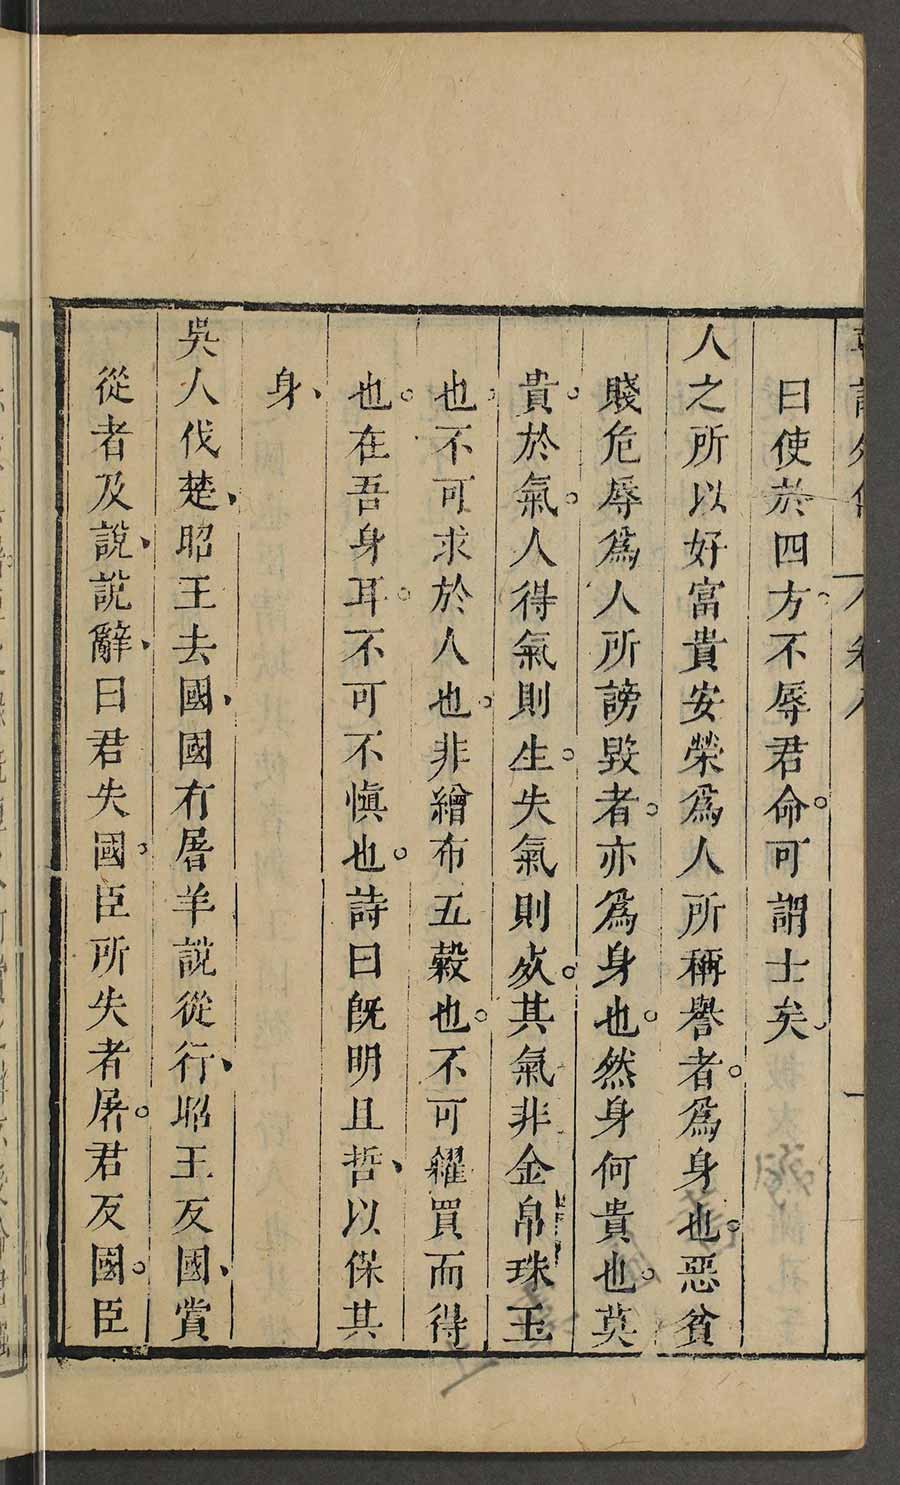 曰使於四方不辱君命可謂士矣
人之所以好富貴安榮爲人所稱譽者爲身也惡貧
賤危辱爲人所謗毀者亦爲身也然身何貴也莫
貴於氣人得氣則生失氣則死其氣非金帛珠玉
也不可求於人也非繒布五穀也不可糴買而得
也在吾身耳不可不慎也詩曰既明且哲以保其
身
吳人伐楚昭王去國國有屠羊說從行昭王反國賞
從者及說說辭曰君失國臣所失者屠君反國臣